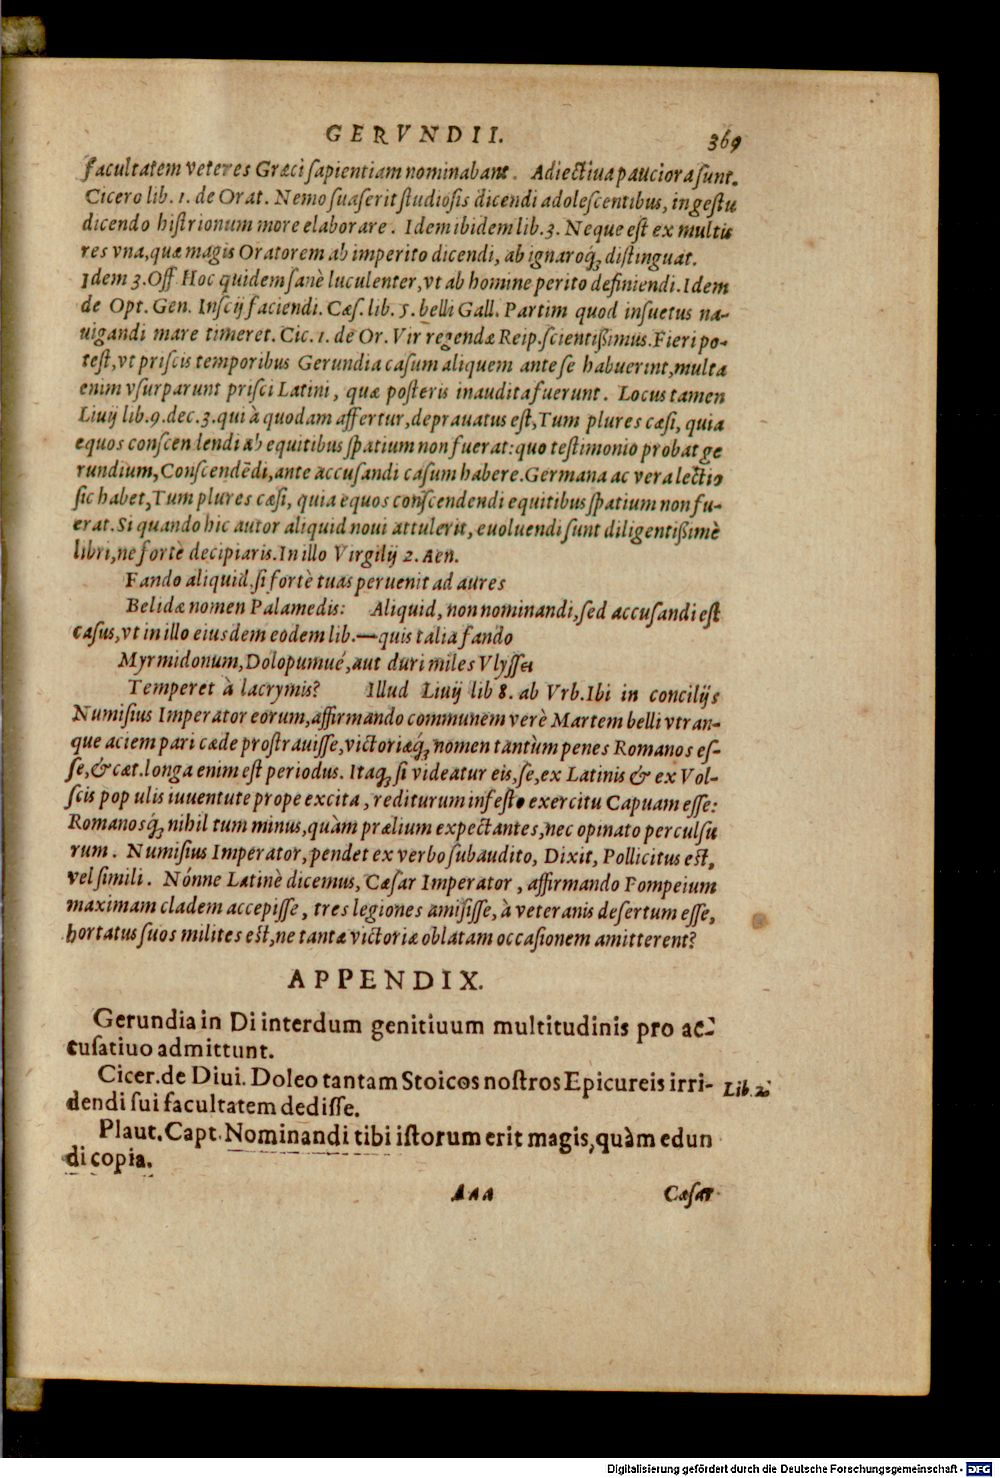 GERVNDII. 369
facultatem veteres Græci sapientiam nominabant. Adiectiua pauciora sunt.
Cicero lib. 1. de Orat. Nemo suaserit studiosis dicendi adolescentibus, in gestu
dicendo histrionum more elaborare. Idem ibidem lib. 3. Neque est ex multis
res vna, quæ magis Oratorem ab imperito dicendi, ab ignaroq́; distinguat.
Idem 3. Off Hoc quidem sanè luculenter, vt ab homine perito definiendi. Idem
de Opt. Gen. Inscij faciendi. Cæs. lib. 5. belli Gall. Partim quod insuetus na-
uigandi mare timeret. Cic. 1. de Or. Vir regendæ Reip. scientißimus. Fieri po-
test, vt priscis temporibus Gerundia casum aliquem ante se habuerint, multa
enim vsurparunt prisci Latini, quæ posteris inaudita fuerunt. Locus tamen
Liuij lib. 9. dec. 3. qui à quodam affertur, deprauatus est, Tum plures cæsi, quia
equos conscen lendi ab equitibus spatium non fuerat: quo testimonio probat ge
rundium, Conscendēdi, ante accusandi casum habere. Germana ac vera lectio
sic habet, Tum plures cæsi, quia equos conscendendi equitibus spatium non fu-
erat. Si quando hic autor aliquid noui attulerit, euoluendi sunt diligentißimè
libri, ne fortè decipiaris. In illo Virgilij 2. Aen.
Fando aliquid, si fortè tuas peruenit ad aures
Belidæ nomen Palamedis: Aliquid, non nominandi, sed accusandi est
casus, vt in illo eiusdem eodem lib.—quis talia fando
Myrmidonum, Dolopumué, aut duri miles Vlyssei
Temperet à lacrymis? Illud Liuij lib 8. ab Vrb. Ibi in concilijs
Numisius Imperator eorum, affirmando communem verè Martem belli vtran-
que aciem pari cæde prostrauisse, victoriæq́; nomen tantùm penes Romanos es-
se, & cæt. longa enim est periodus. Itaq; si videatur eis, se, ex Latinis & ex Vol-
scis pop ulis iuuentute prope excita, rediturum infesto exercitu Capuam esse:
Romanosq́; nihil tum minus, quàm prælium expectantes, nec opinato perculsu
rum. Numisius Imperator, pendet ex verbo subaudito, Dixit, Pollicitus est,
vel simili. Nónne Latinè dicemus, Cæsar Imperator, affirmando Pompeium
maximam cladem accepisse, tres legiones amisisse, à veteranis desertum esse,
hortatus suos milites est, ne tantæ victoriæ oblatam occasionem amitterent?
APPENDIX.
Gerundia in Di interdum genitiuum multitudinis pro ac-
cusatiuo admittunt.
Cicer. de Diui. Doleo tantam Stoicos nostros Epicureis irri- Lib. 2.
dendi sui facultatem dedisse.
Plaut. Capt. Nominandi tibi istorum erit magis, quàm edun
di copia.
Aaa Cæsar
Digitalisierung gefördert durch die Deutsche Forschungsgemeinschaft - DFG